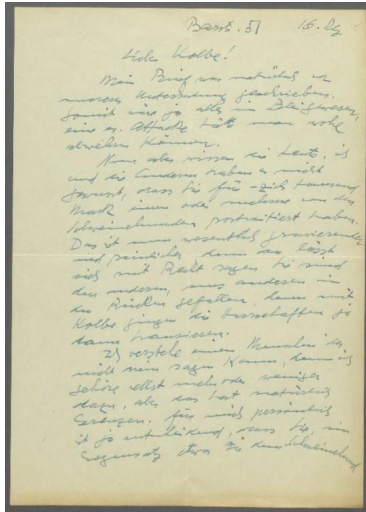 16. 
Lieber Kolbe!
Mein Brief war natürlich vor
unserer Unterredung geschrieben.
Somit wäre ja alles im
eine Attacke hätte man wohl
abwehren können.
Nun aber wissen die Leute, ich
und die Anderen haben es nicht
gewusst, dass Sie für -zich tausend
Mark einen oder mehrere von den
Schweinehunden portraitiert haben.
Das ist nun wesentlich gravierender
und peinlicher, denn da lässt
sich mit Recht sagen Sie sind
den anderen, uns anderen in
den Rücken gefallen, denn mit
Kolbe gingen die ja
dann hausieren.
Ich verstehe einen Menschen der
nicht nein sagen kann, denn ich
gehöre selbst mehr oder weniger
dazu, aber das hat natürlich
Grenzen. Für mich persönlich
ist ja entscheidend, dass Sie, im
Gegensatz etwa zu dem Schweinehund